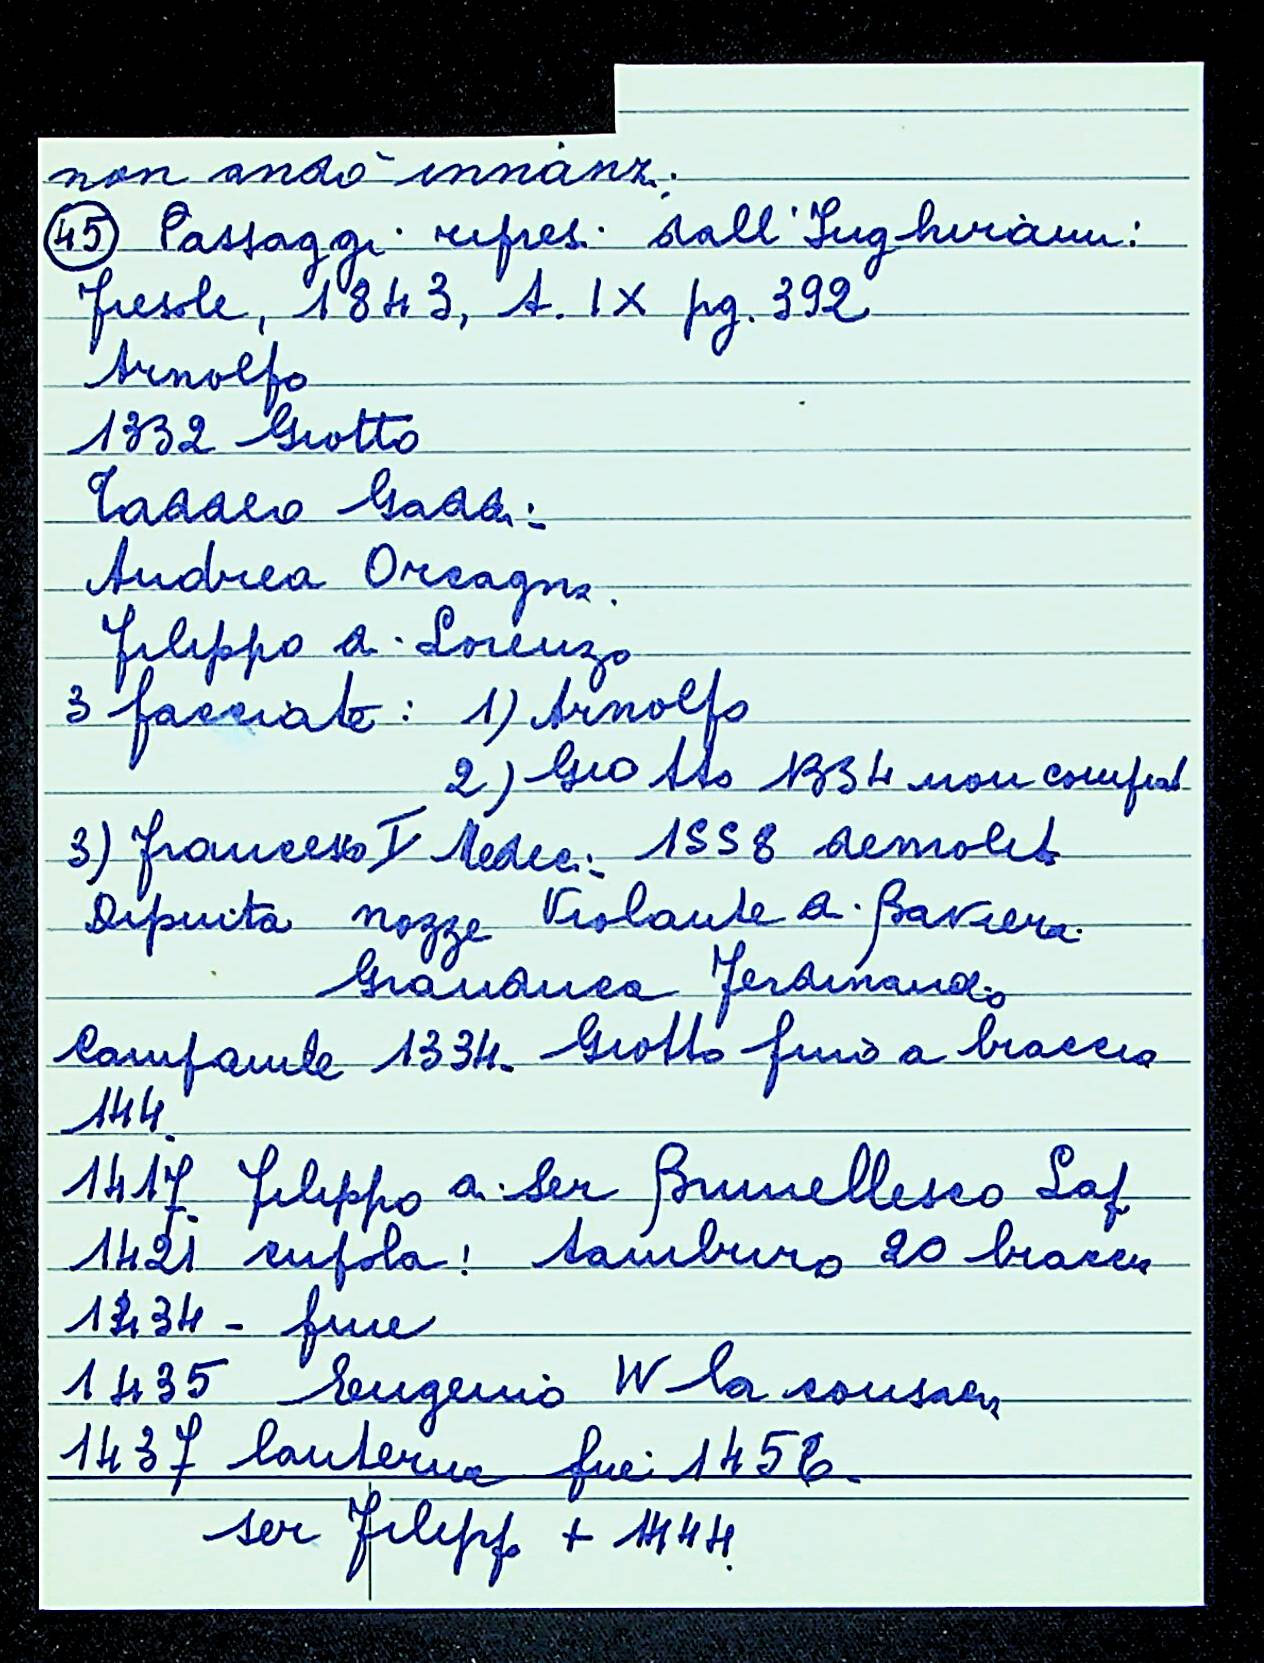 non andò innanzi
45 Passaggi ripres. dall'Inghirami:
Fiesole, 1843, t. IX pg. 392
Arnolfo
1332 Giotto
Taddeo Gaddi
Andrea Orcagna.
Filippo d. Lorenzo
3 facciate: 1) Arnolfo
2) Giotto 1334 non compiut
3) Francesco I Medici 1558 demolit
Dipinta nozze Violante d. Baviera
Granduca Ferdinando
Campanile 1334. Giotto finì a braccia
144.
1417. Filippo d. Ser Brunellesco Lap
1421 cupola! tamburo 20 braccia
1434 - fine
1435 Eugenio IV la consacr
1437 lanterna fini 1456.
ser Filipp + 1444.